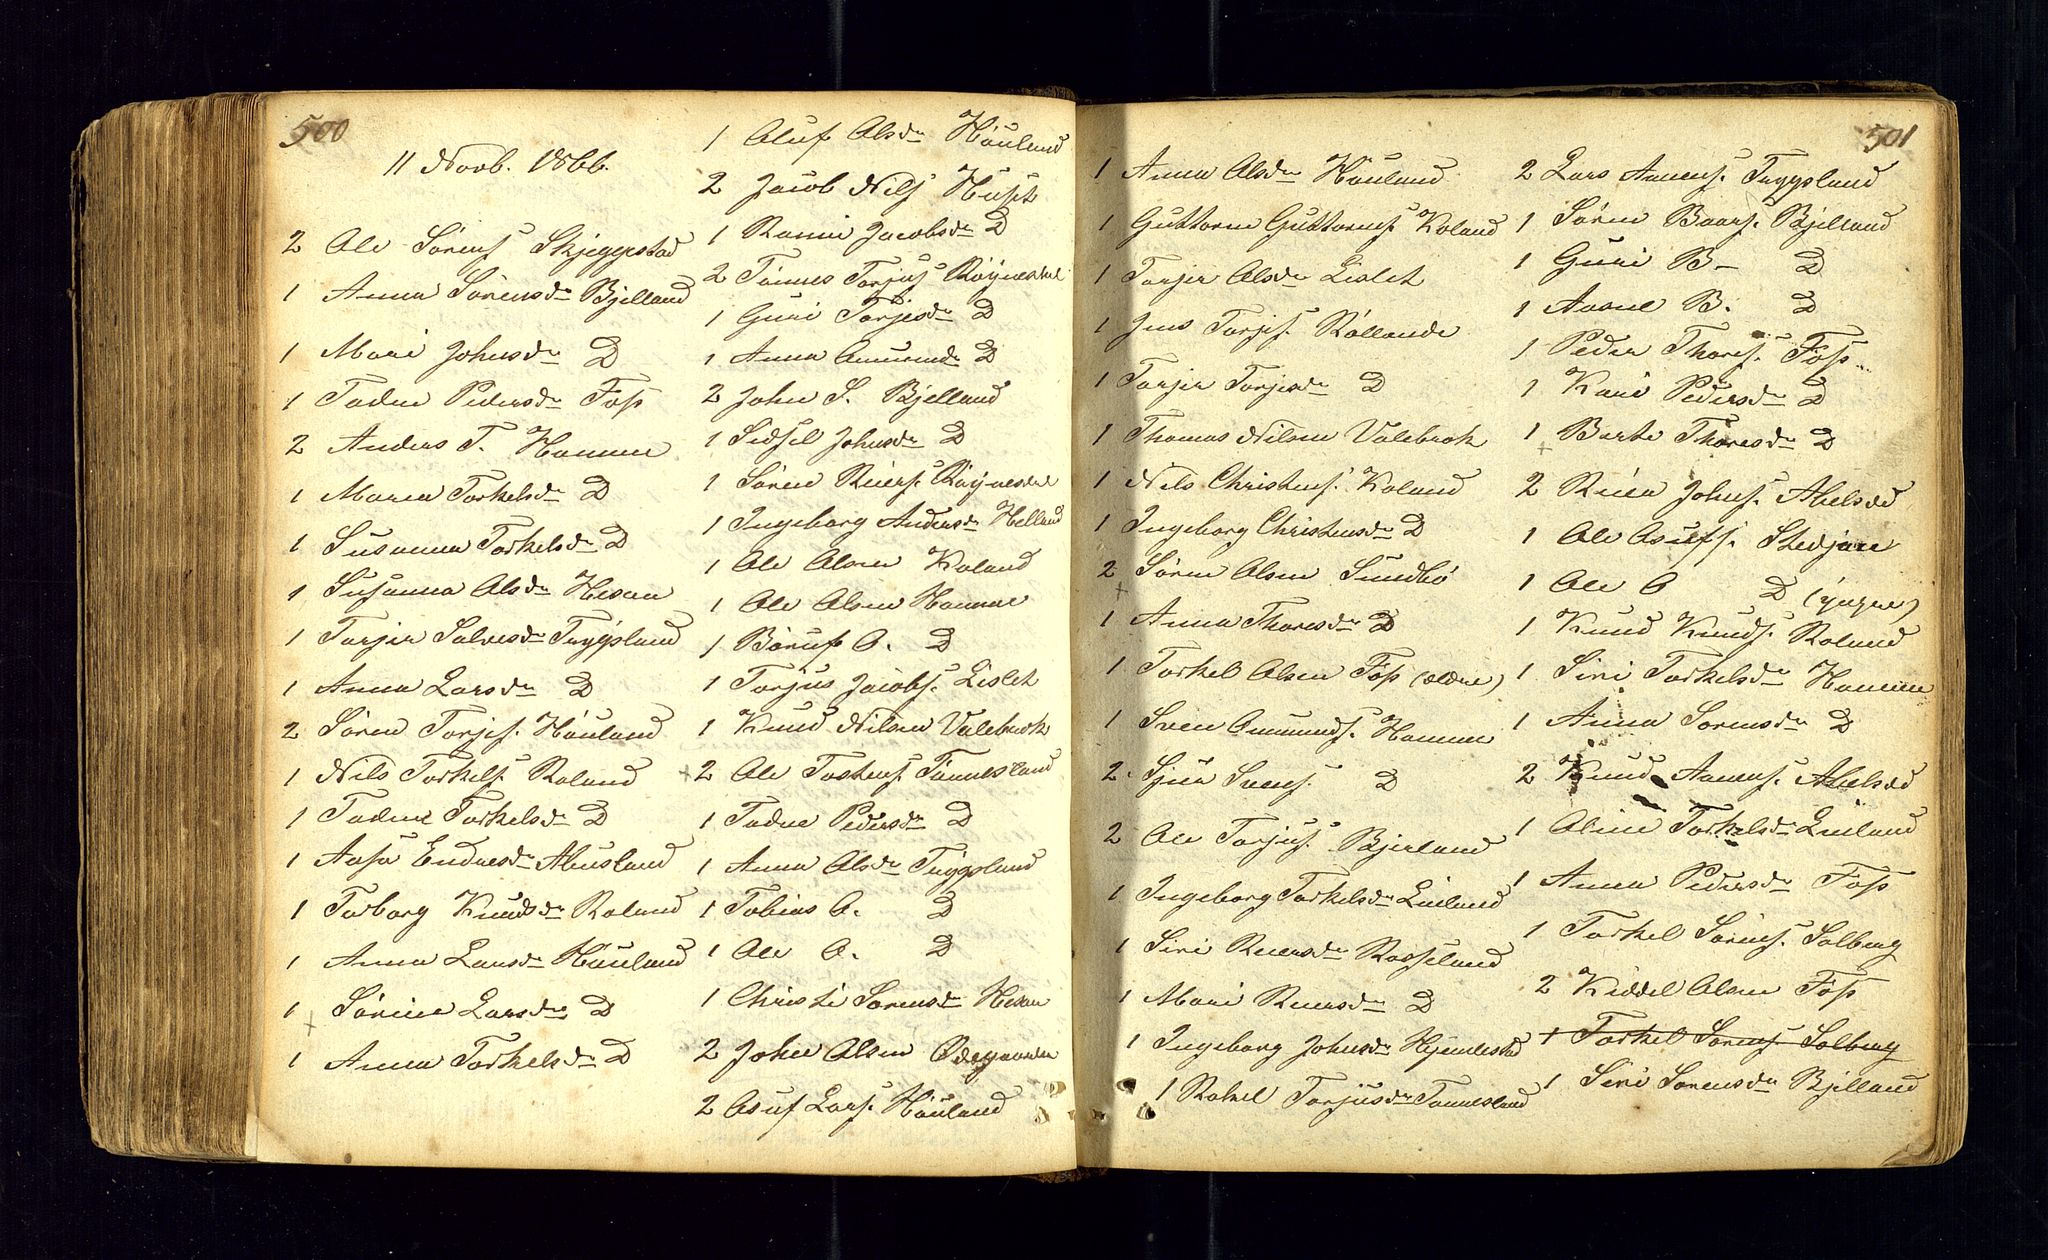 500
11 Novb. 1866.
2 Ole Sørens. Skjeggestad
1 Anna Sørensdr Bjelland
1 Mari Johnsdr D
1 Taden Pedersdr Foss
2 Anders T. Homme
1 Maren Torkelsdr D
1 Susanna Torkelsdr D
1 Susanna Olsdr Hesaa
1 Torjer Salvesdr Tryggsland
1 Anna Larsdr D
2 Søren Torjes. Høuland
1 Nils Torkels. Roland
1 Tadne Torkelsdr D
1 Aasa Endresdr Abusland
1 Torborg Knudsdr Roland
1 Anna Larsdr Høuland
1 Sørine Larsdr D
+
1 Anna Torkelsdr D
1 Oluf Olsdr Høuland
2 Jacob Nils. Huset
1 Ranni Jacobsdr D
2 Tønnes Torjus. Røynesdal
1 Guri Torjesdr D
1 Anna Omundsdr D
2 John S. Bjelland
1 Sidsel Johnsdr D
1 Søren Reiers. Røynesdal
1 Ingeborg Andersdr Helland
1 Ole Olsen Koland
1 Ole Olsen Homme
1 Børuf O. D
1 Torjus Jacobs. Lislet
1 Knud Nilsen Valebrok
+ 2 Ole Tostens. Tønnesland
1 Tadne Pedersdr D
1 Anna Olsdr Tryggsland
1 Tobias O. D
1 Ole O. D
1 Christi Sørensdr Hesaa
2 John Olsen Ødegaarden
2 Osuf Lars. Høuland
501
1 Anna Olsdr Høuland
1 Guttorm Guttorms. Koland
1 Torjer Olsdr Lislet
1 Jens Torjes. Røllende
1 Torjer Torjesdr D
1 Thomas Nilsen Valebrok
1 Nils Christens. Koland
1 Ingeborg Christensdr D
2 Søren Olsen Sundbø
+
1 Anna Thoresdr D
1 Torkel Olsen Foss (ældre)
1 Sven Omunds. Homme
2 Sjur Svens. D
2 Ole Torjus. Bjerland
1 Ingeborg Torkelsdr Liuland
1 Siri Reiersdr Rosseland
1 Mari Reiersdr D
1 Ingeborg Johnsdr Hjemlestad
1 Rakel Torjusdr Tønnesland
2 Lars Aanens. Tryggsland
1 Søren Baars. Bjelland
1 Guri B- D
1 Aasne B. D
1 Peder Thores. Foss
1 Kari Pedersdr D
1 Berte Thoresdr D
+
2 Reier Johns. Abelsed
1 Ole Osufs. Stedjan
1 Ole O D (yngre)
1 Knud Knuds. Roland
1 Siri Torkelsdr Homme
1 Anna Sørensdr D
2 Knud Aanens. Abelsed
1 Oline Torkelsdr Liuland
1 Anna Pedersdr Foss
1 Torkel Sørens. Solberg
2 Kiddel Olsen Foss
1 Torkel Sørens. Solberg
1 Siri Sørensdr Bjelland